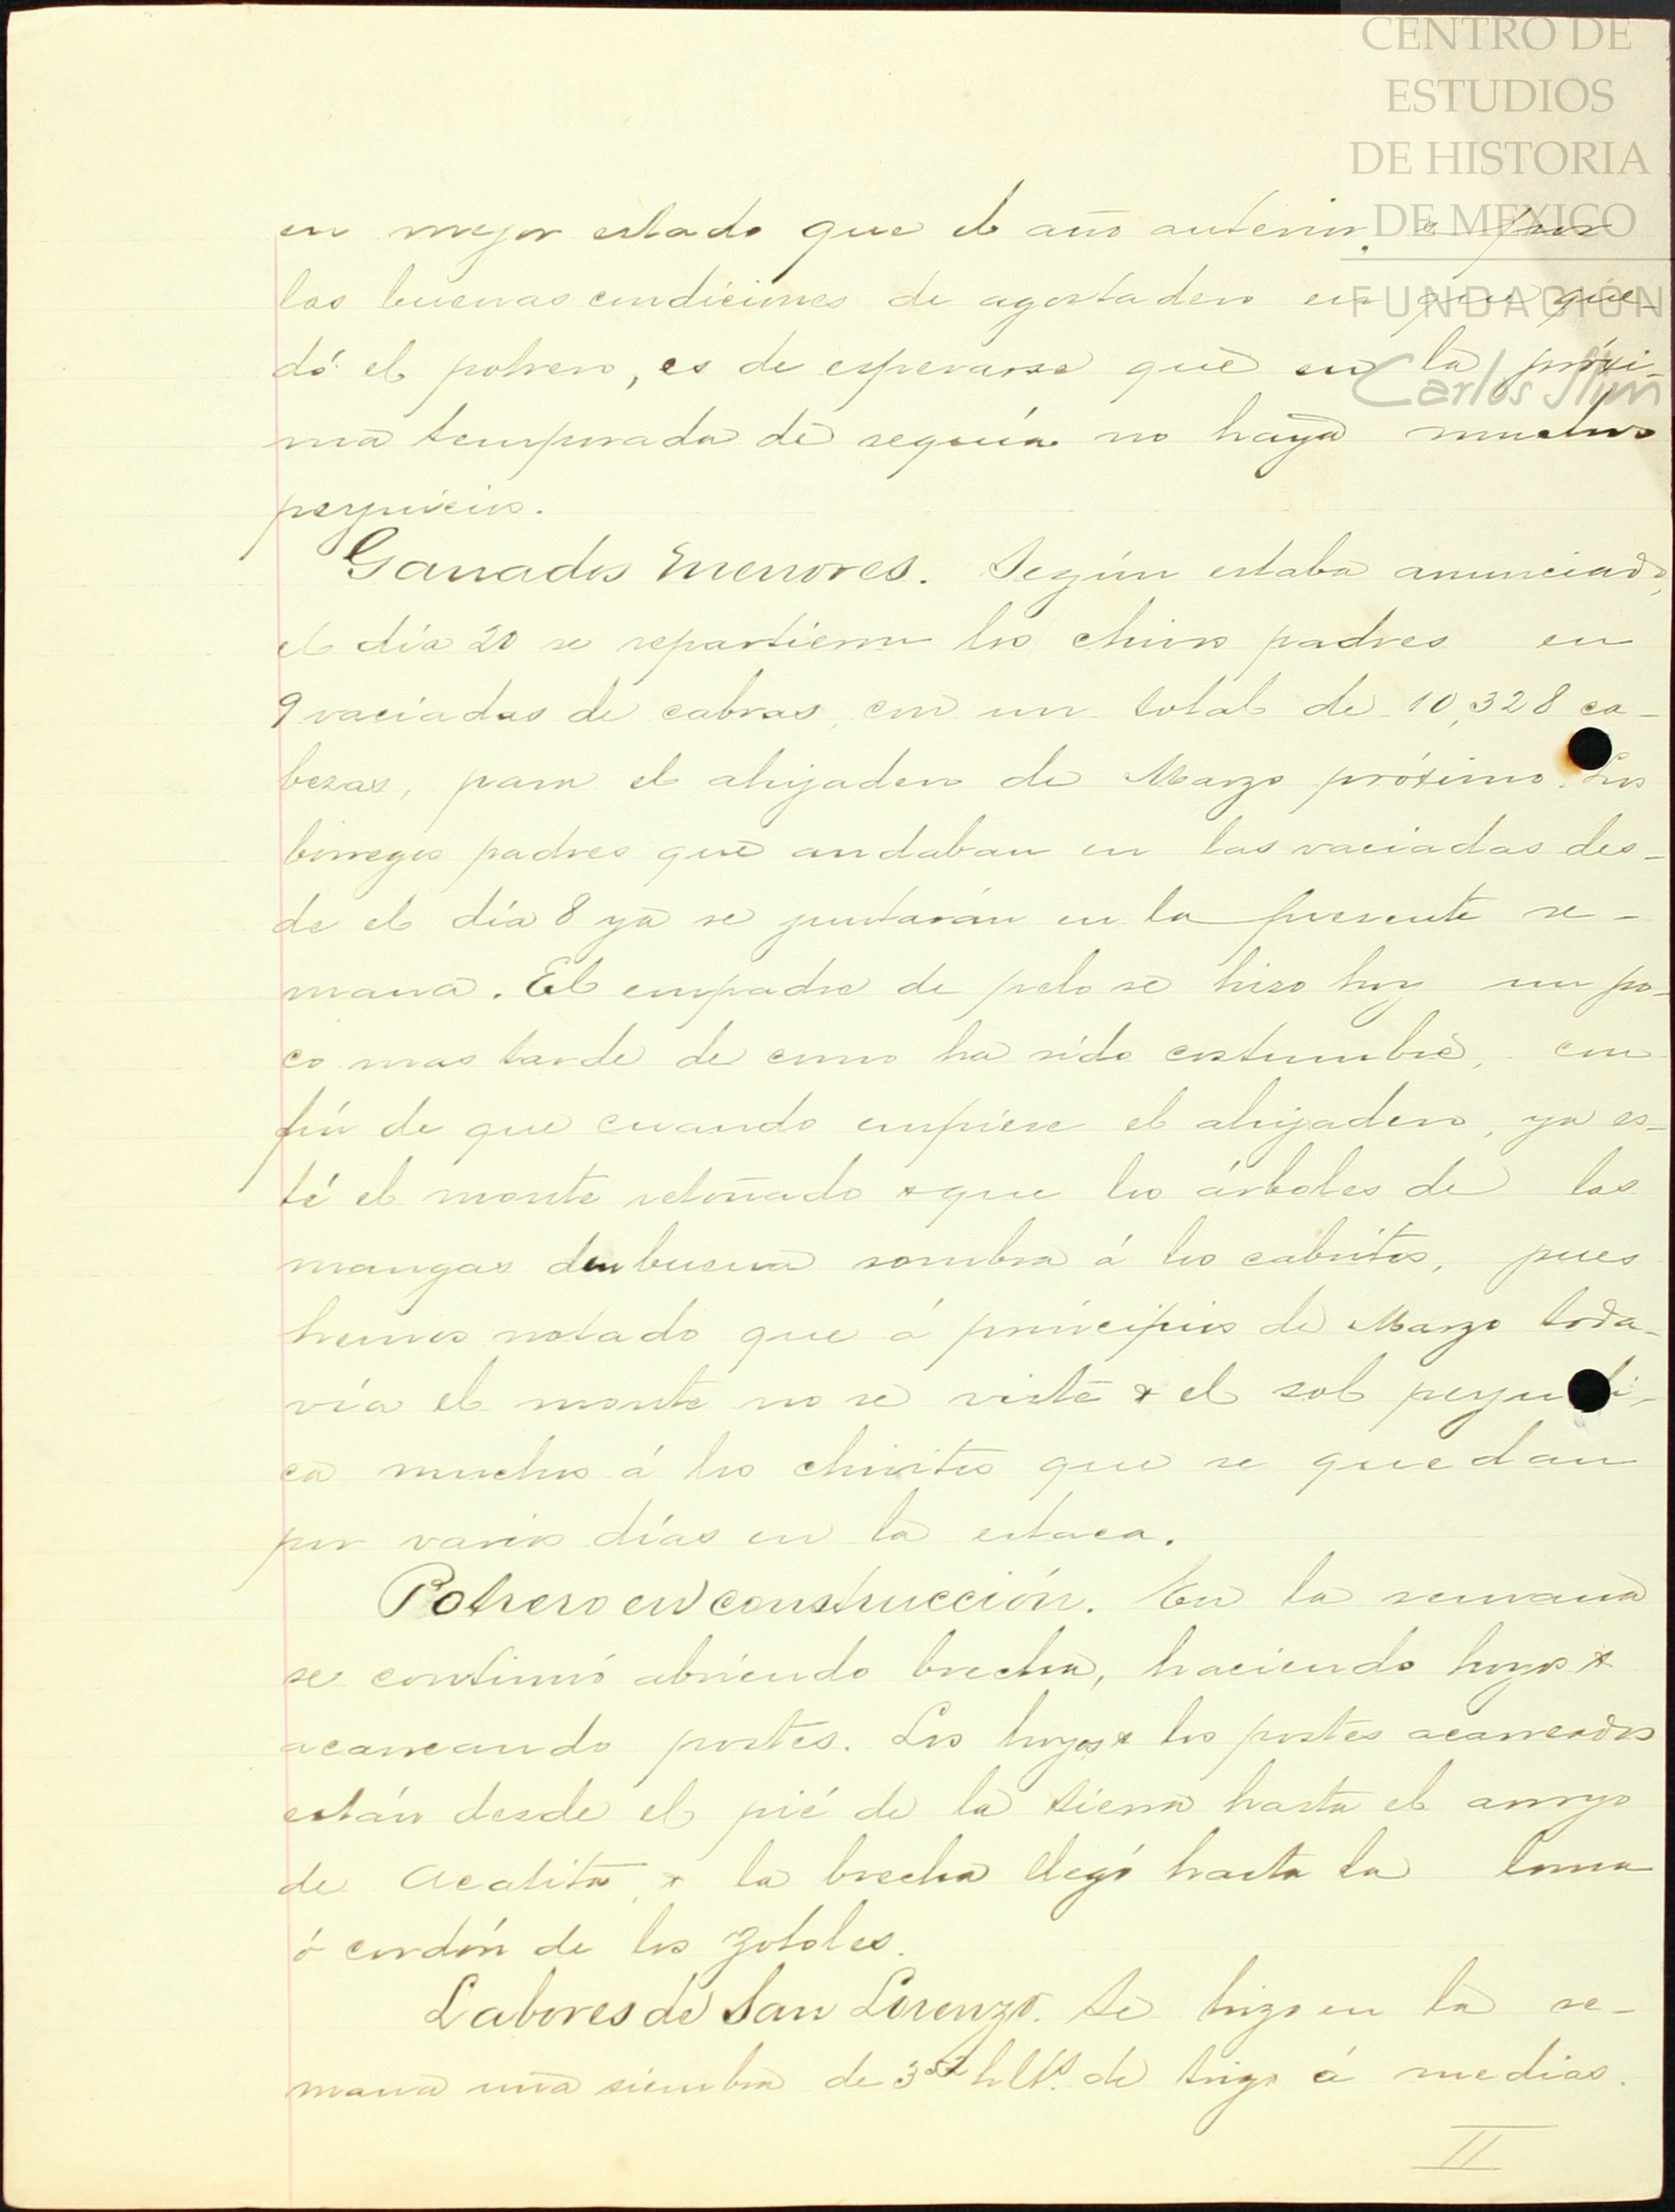 CENTRO DE
ESTUDIOS
DE HISTORIA
DE MEXICO
FUNDACIÓN
Carlos Slim
en mejor estado que el año anterior, & por
las buenas condiciones de agostadero en que que-
dó el potrero, es de esperarse que en la próxi-
ma temporada de sequía no haya muchos
perjuicios.
Ganados menores. Según estaba anunciado,
el día 20 se repartieron los chivos padres en
9 vaciadas de cabras, con un total de 10,328 ca-
bezas, para el ahijadero de Marzo próximo. Los
borregos padres que andaban en las vaciadas des-
de el día 8 ya se juntarán en la presente se-
mana. El empadre de pelo se hizo hoy un po-
co mas tarde de como ha sido costumbre, con
fín de que cuando empiese el ahijadero, ya es-
té el monte retoñado & que los árboles de las
mangas den buena sombra á los cabritos, pues
hemos notado que á principios de Marzo toda-
vía el monte no se viste & el sol perjudi-
ca mucho á los chivitos que se quedan
por varios días en la estaca.
Potrero en construcción. En la semana
se continuó abriendo brecha, haciendo hoyos &
acarreando postes. Los hoyos & los postes acarreados
están desde el pié de la sierra hasta el arroyo
de Acatita, & la brecha llegó hasta la loma
ó cordón de los Zotoles.
Labores de San Lorenzo. Se hizo en la se-
mana una siembra de 3 hlts. de trigo á medias.
II